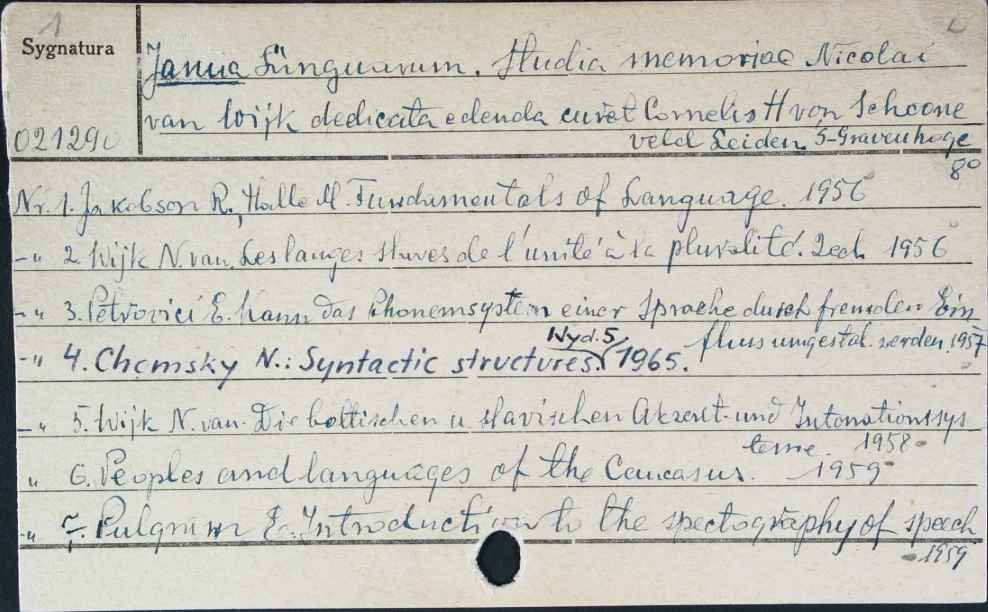 1
Sygnatura
021290
Janua Linguarum. Studia memoriae Nicolai
van Wijk dedicata edenda curat Cornelis H van Schoone
veld Leiden S-Gravenhage
8°
Nr. 1. Jakobson R., Halle M. Fundamentals of Language. 1956
-" 2. Wijk N. van. Les langes slaves de l'unité à la pluralité. 2 ed. 1956
-" 3. Petrovici E. Kann das Phonemsystem einer Sprache durch fremden Ein
fluss umgestal. werden. 1957
-" 4. Chomsky N.: Syntactic structures. Wyd. 5, 1965.
-" 5. Wijk N. van. Die baltischen u slavischen Akzent- und Intonationssys
teme. 1958
" 6. Peoples and languages of the Caucasus. 1959
-" 7. Pulgram E. Introduction to the spectography of speech
1959